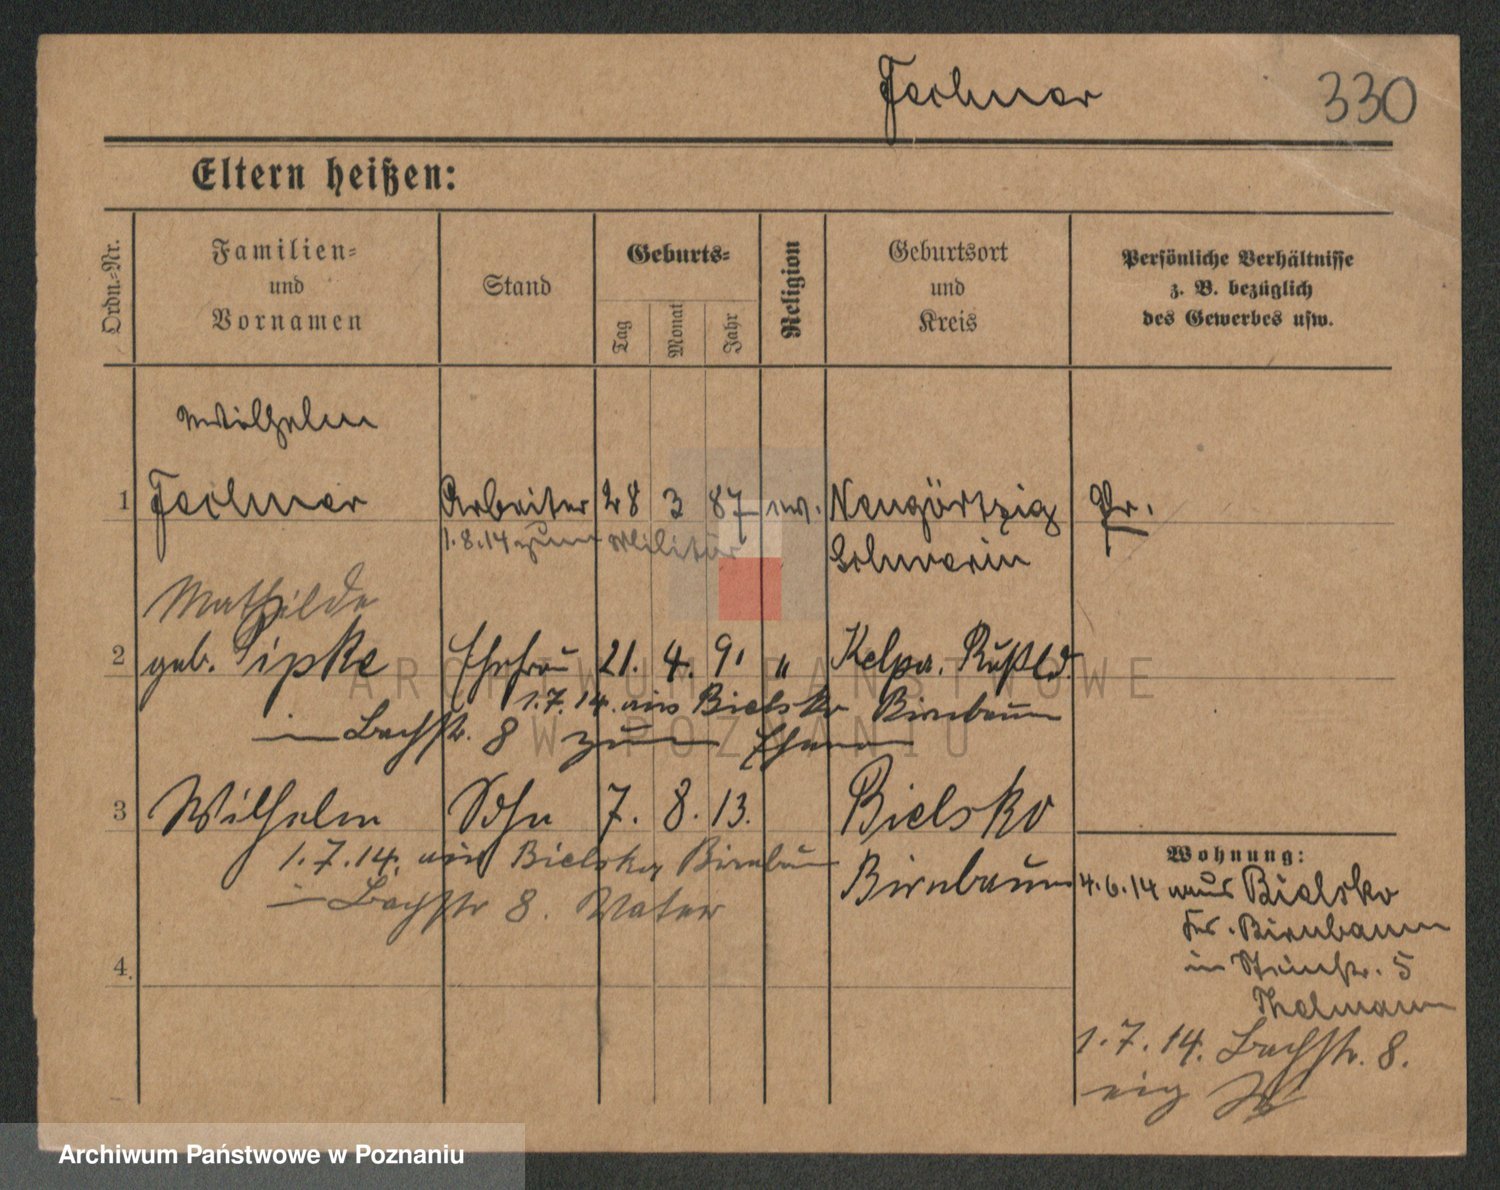 Fechner 330
Eltern heißen:
Ordn.-Nr. Familien- und Vornamen Stand Geburts- Tag Monat Jahr Religion Geburtsort und Kreis Persönliche Verhältnisse z. B. bezüglich des Gewerbes usw.
Wilhelm
1 Fechner Arbeiter 28 3 87 ev. Neugörtzig Pr.
1.8.14 zum Militär Schwerin
Mathilde
2 geb. Pipke Ehefrau 21. 4. 91 " Kelpa. Rußld.
1.7.14. aus Bielsko Birnbaum
in Bachstr. 8 zum Ehemann
3 Wilhelm Sohn 7. 8. 13. Bielsko
1.7.14. aus Bielsko Birnbaum Birnbaum
in Bachstr 8. Vater
4.
Wohnung:
4.6.14 aus Bielsko
Krs. Birnbaum
in 5
Thalmann
1.7.14. Bachstr. 8.
eig
ARCHIWUM PAŃSTWOWE
W POZNANIU
Archiwum Państwowe w Poznaniu